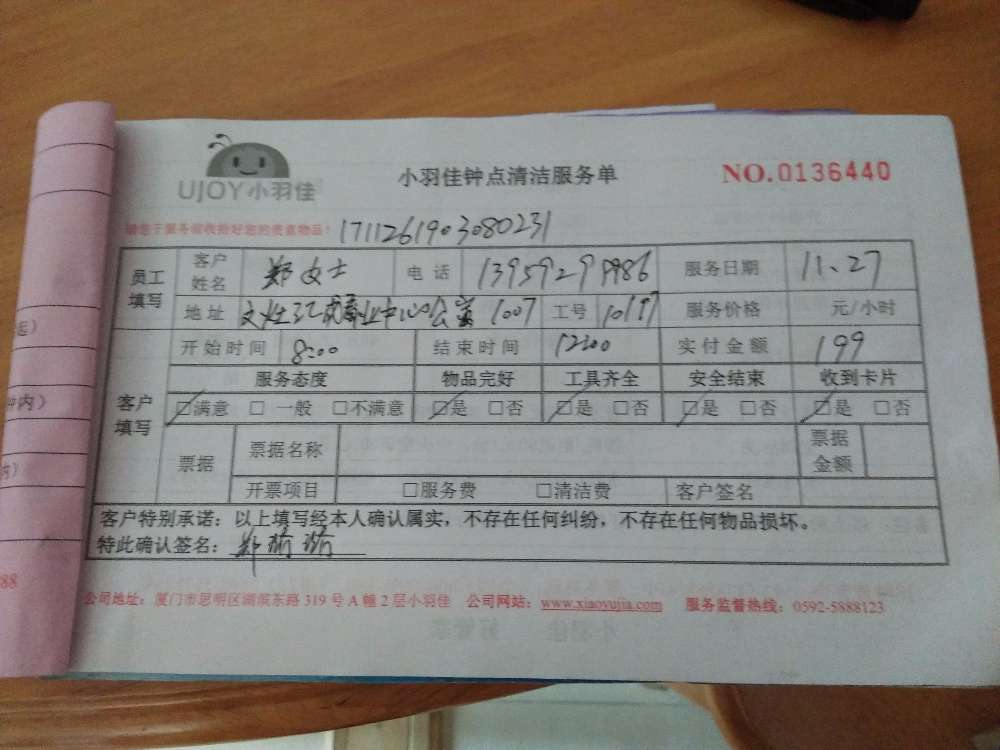 UJOY小羽佳
小羽佳钟点清洁服务单
NO.0136440
请您于服务前收捡好您的贵重物品!
1711261903080231
员工填写 客户姓名 郑女士 电话 服务日期 11.27
地址 1007 工号 服务价格 元/小时
开始时间 8:00 结束时间 12:00 实付金额 199
客户填写 服务态度 物品完好 工具齐全 安全结束 收到卡片
□满意 □一般 □不满意 □是 □否 □是 □否 □是 □否 □是 □否
票据 票据名称 票据金额
开票项目 □服务费 □清洁费 客户签名
客户特别承诺:以上填写经本人确认属实,不存在任何纠纷,不存在任何物品损坏。
特此确认签名:郑
公司地址:厦门市思明区湖滨东路319号A幢2层小羽佳 公司网站:www.xiaoyujia.com 服务监督热线:0592-5888123
起)
钟内)
内)
88